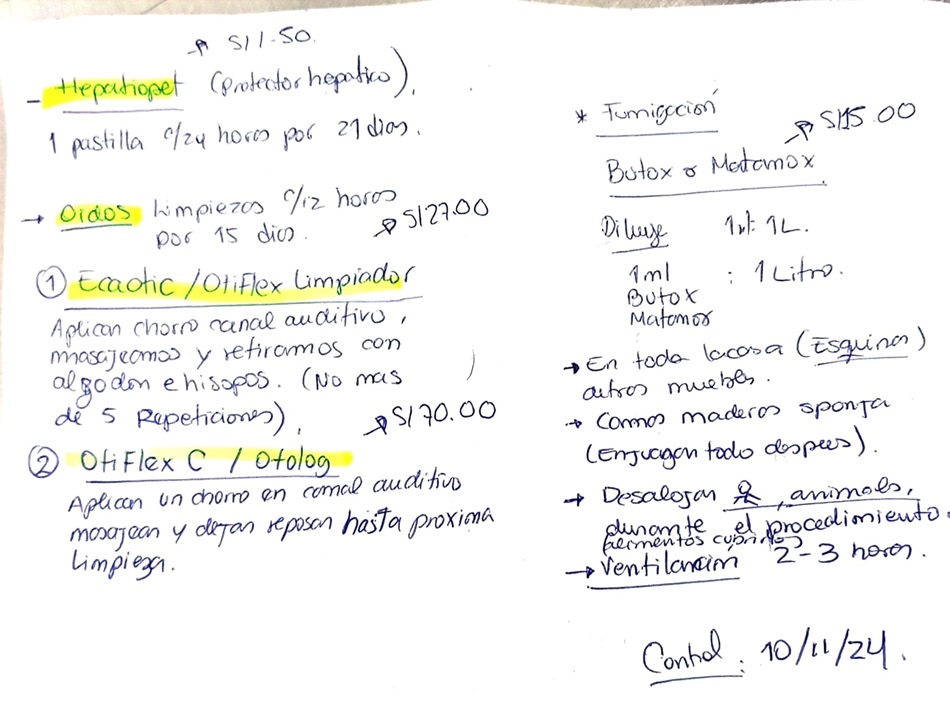 S/1.50.
- Hepatiopet (Protector hepatico).
1 pastilla c/24 horas por 21 dias.
→ Oidos limpiezas c/12 horas
por 15 dias.
S/27.00
① Ecaotic / Otiflex Limpiador
Aplican chorro canal auditivo,
masajeamos y retiramos con
algodon e hisopos. (No mas
de 5 Repeticiones).
S/70.00
② Otiflex C / Otolog
Aplican un chorro en canal auditivo
masajean y dejan reposan hasta proxima
limpieza.
* Fumigación
S/15.00
Butox o Matamox
Diluye 1ml: 1L.
1ml : 1 Litro.
Butox
Matamox
→ En toda la casa (Esquinas)
autros muebles.
→ Camas maderas sponja
(Enjuagan todo despues).
→ Desalojan , animals,
durante el procedimiento.
cubridos
→ Ventilación 2-3 horas.
Control: 10/11/24.